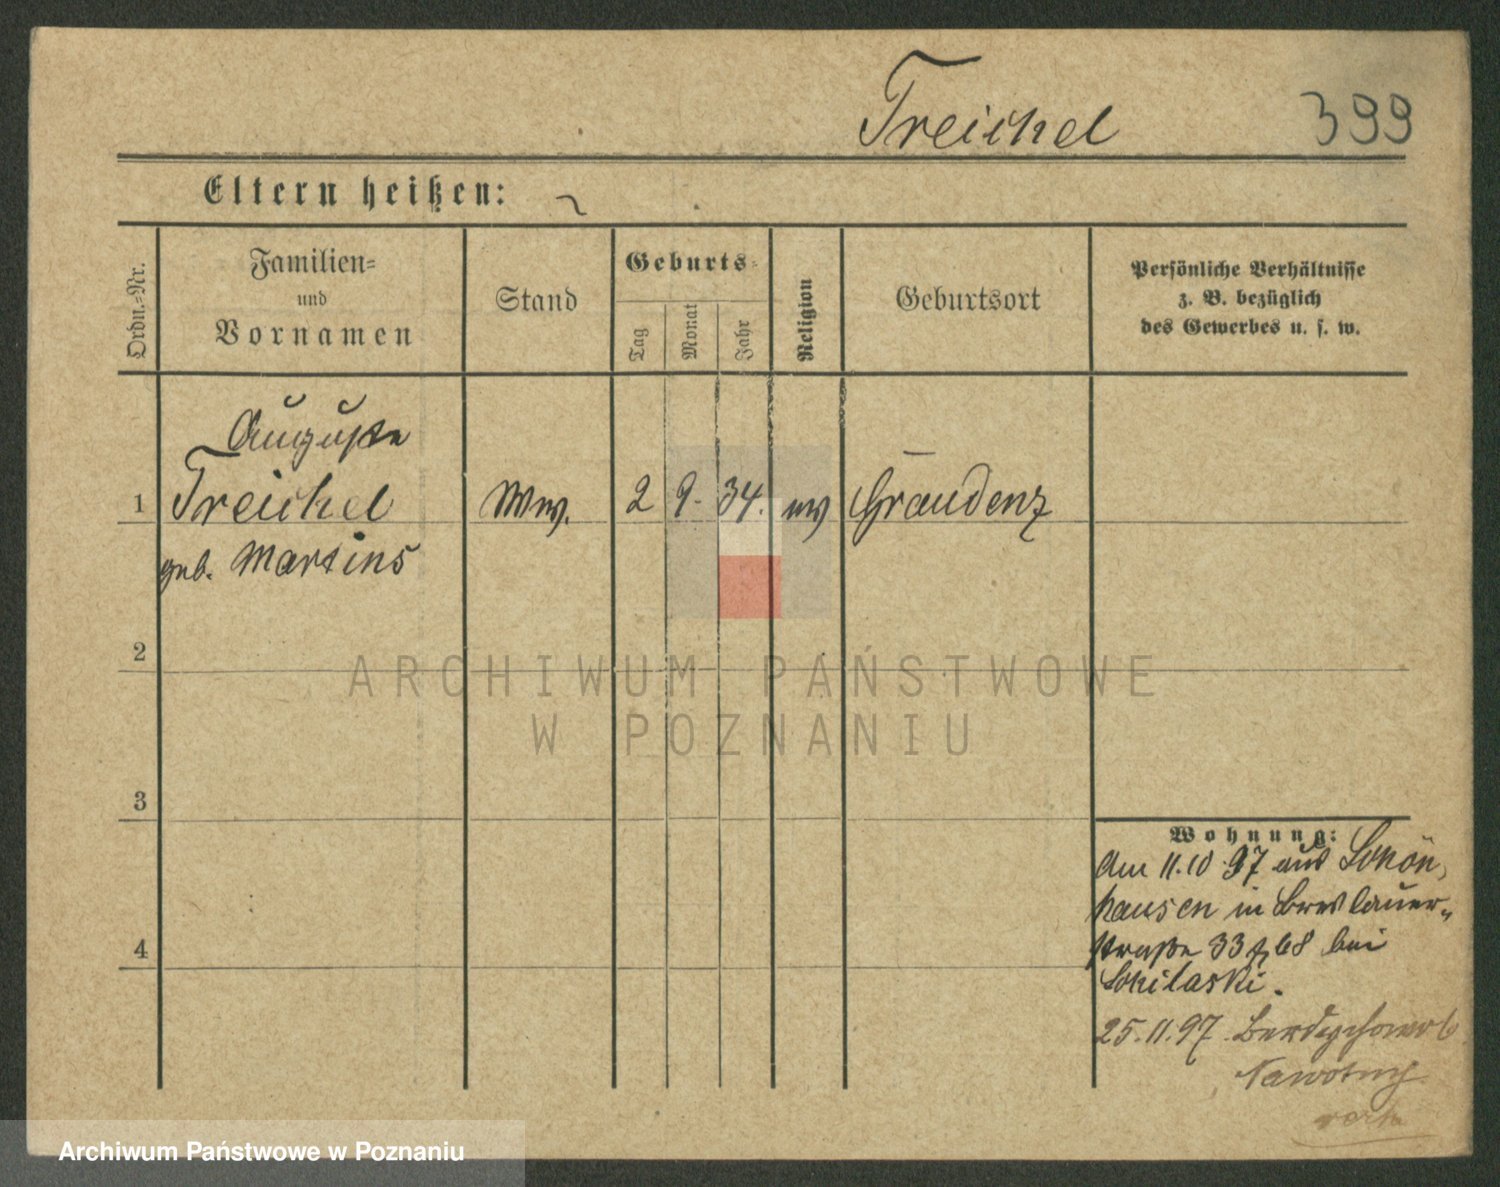 Treichel 399
Eltern heißen:
Ordn.-Nr.
Familien-
und
Vornamen
Stand
Geburts-
Tag
Monat
Jahr
Religion
Geburtsort
Persönliche Verhältnisse
z. B. bezüglich
des Gewerbes u. s. w.
Auguste
1 Treichel Ww. 2 9. 34. ev Graudenz
geb. Martins
2
ARCHIWUM PAŃSTWOWE
W POZNANIU
3
Wohnung:
Am 11.10.97 aus Schön,
hausen in Breslauer-
straße 33 bei
25.11.97
4
Archiwum Państwowe w Poznaniu